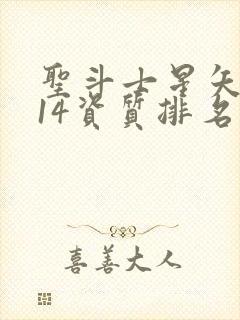 聖斗士星矢
14資質排名
喜善大人